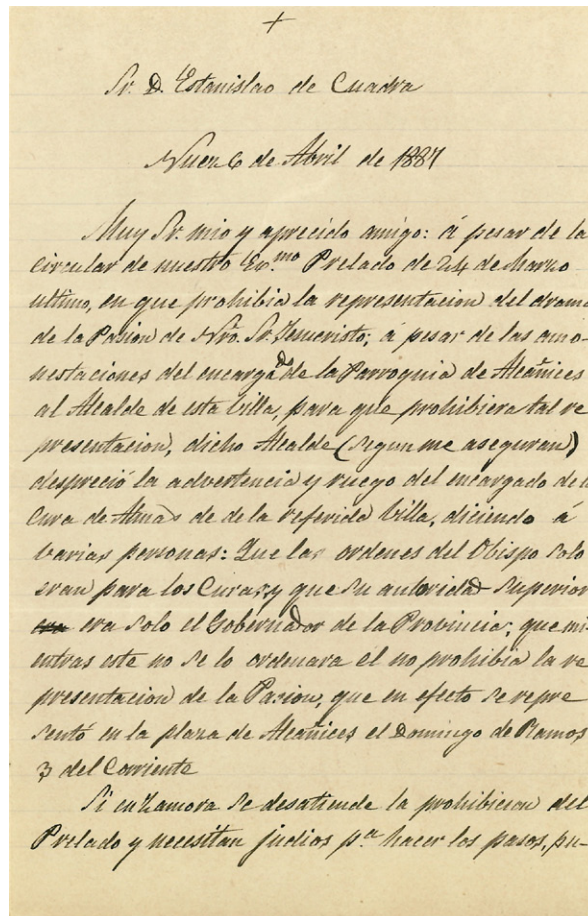 +
Sr. D. Estanislao de Cuadra
Nuez 6 de Abril de 1887
Muy Sr. mio y aprecido amigo: á pesar de la
circular de nuestro Ex.mo Prelado de 24 de Marzo
ultimo, en que prohibia la representacion del drama
de la Pasion de Ntro. Sr. Jesucristo; á pesar de las amo-
nestaciones del encargado de la Parroquia de Alcañices
al Alcalde de esta billa, para que prohibiera tal re
presentacion, dicho Alcalde (segun me aseguran)
despreció la advertencia y ruego del encargado de la
Cura de Almas de de la referida billa, diciendo á
barias personas: Que las ordenes del Obispo solo
eran para los Curas, y que su autoridad superior
era era solo el Gobernador de la Provincia; que mi-
entras este no se lo ordenara él no prohibia la re
presentacion de la Pasion, que en efecto se repre
sentó en la plaza de Alcañices el Domingo de Ramos
3 del Corriente
Si en Zamora se desatiende la prohibicion del
Prelado y necesitan judios p.a hacer los pasos, pu-